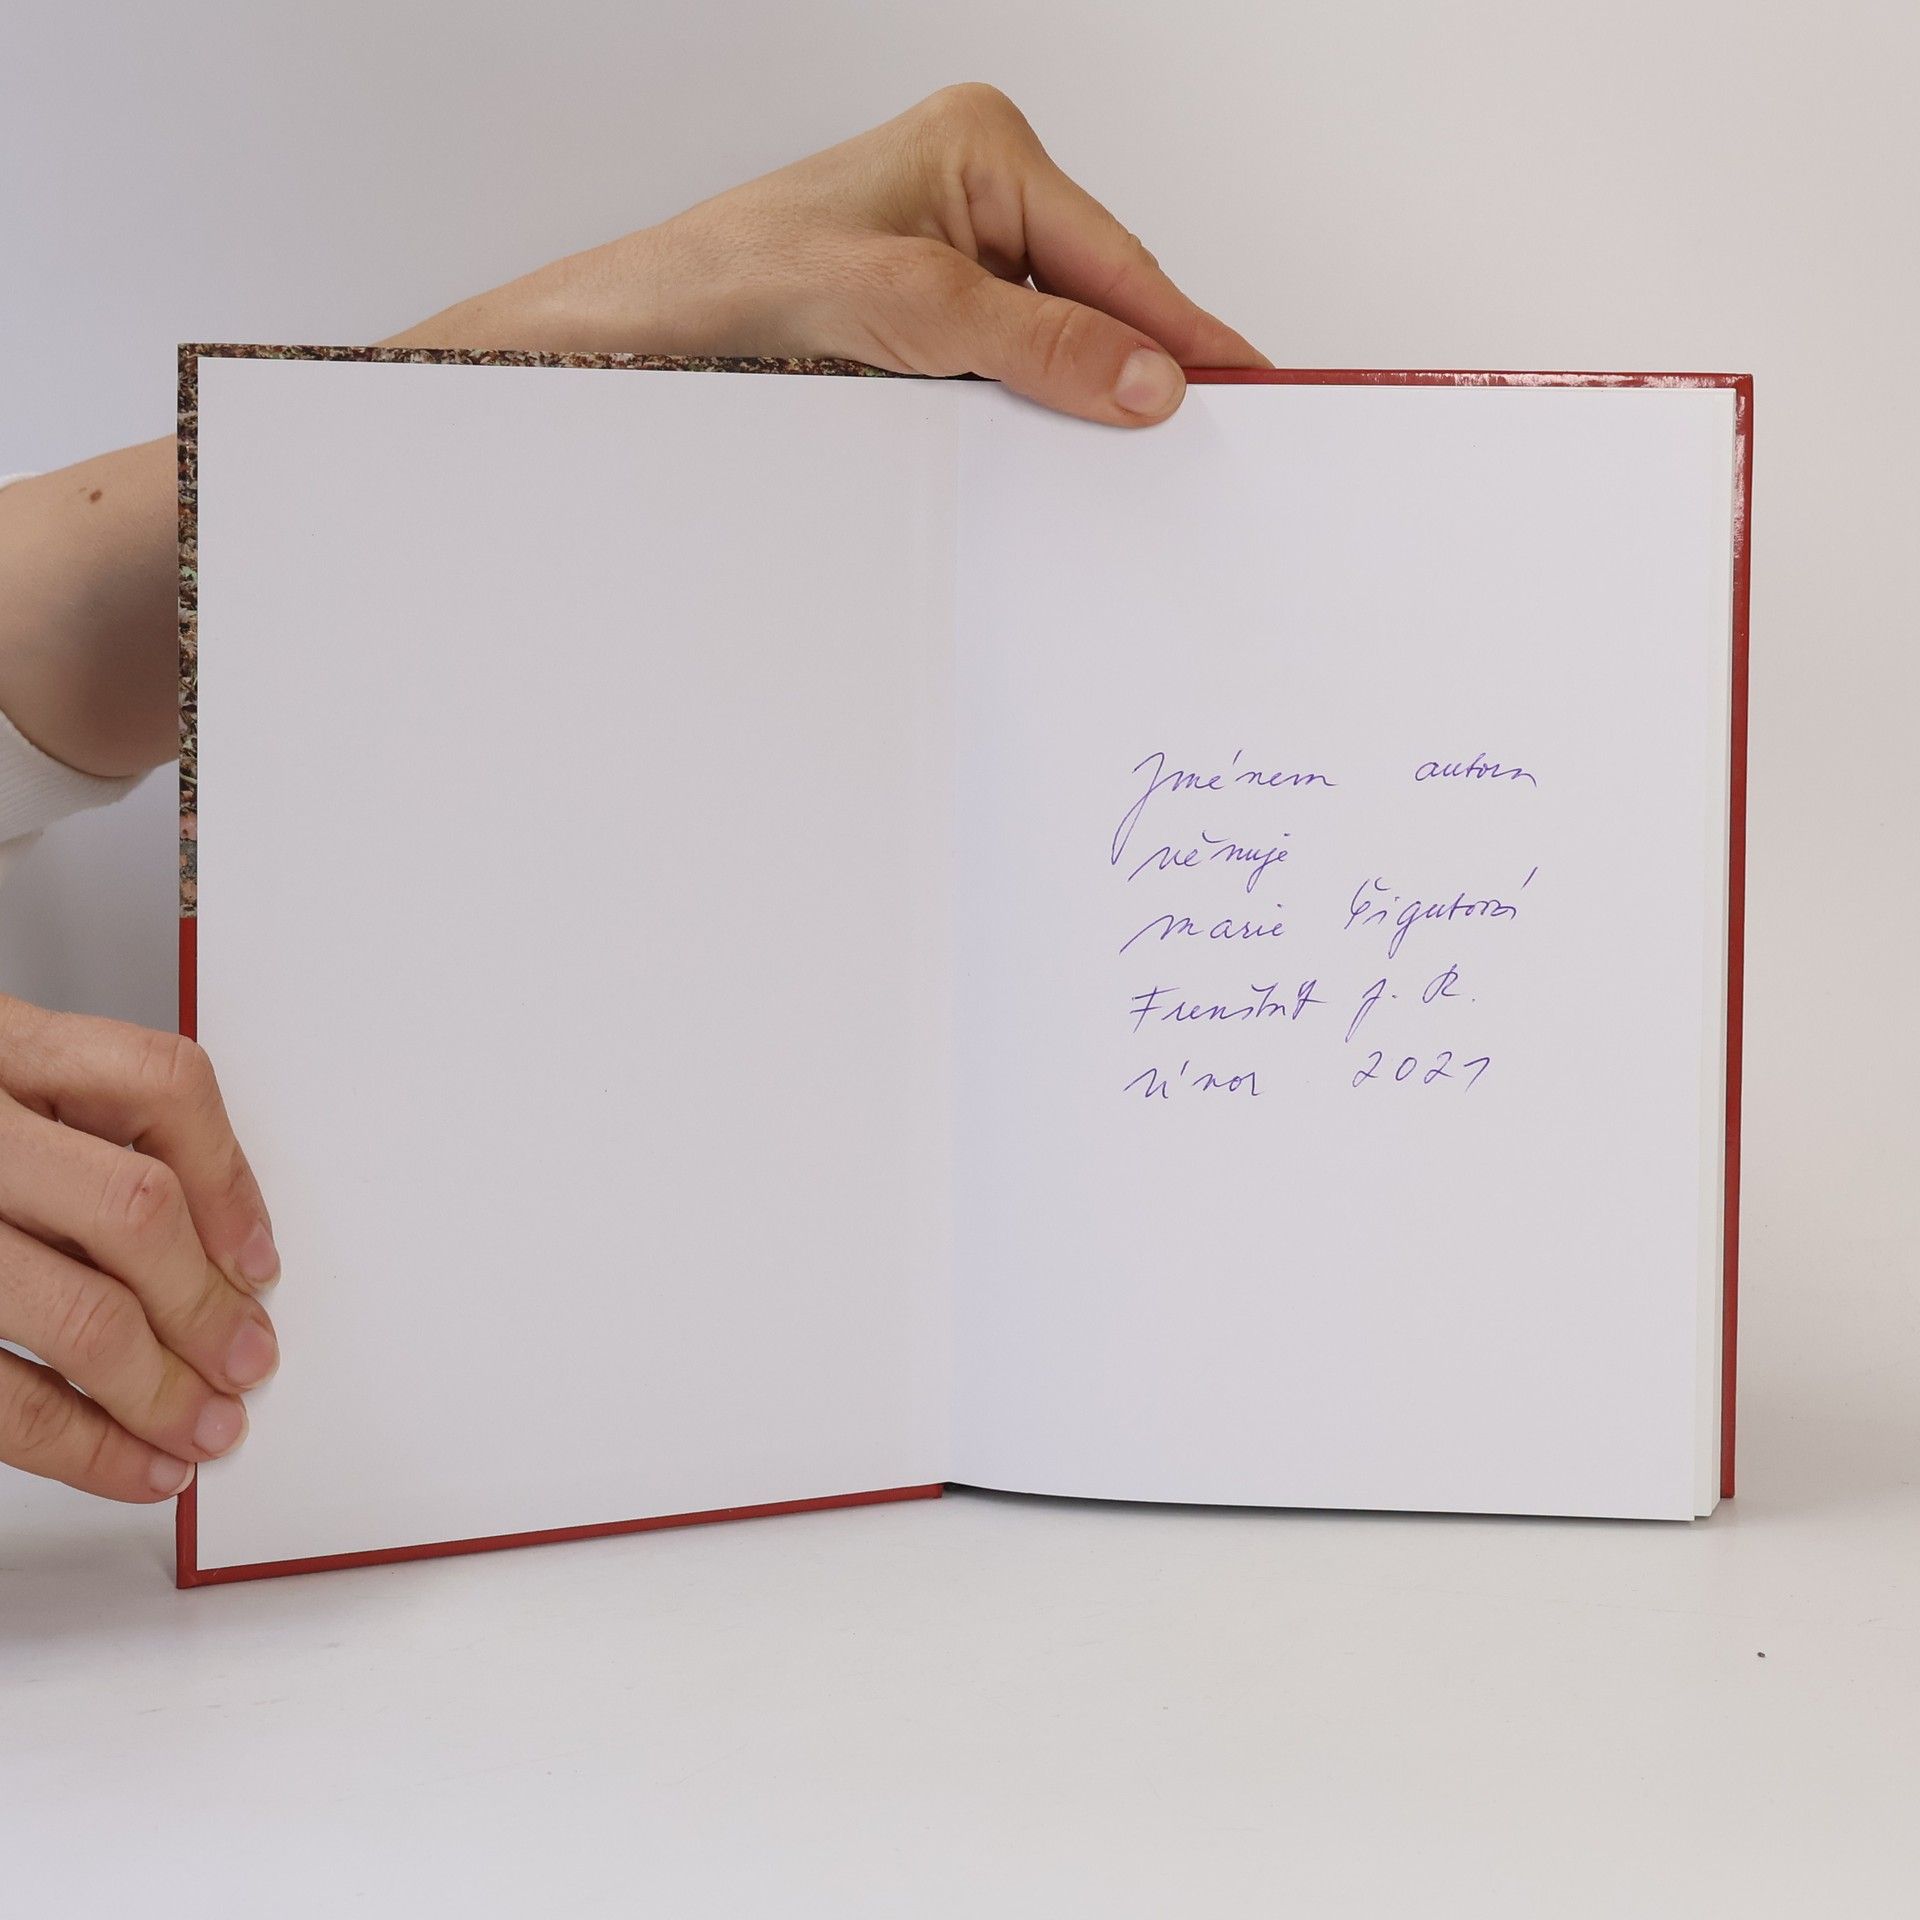 Jménem autora
věnuje
Marie Čigutová
Frenštát p. R.
únor 2021